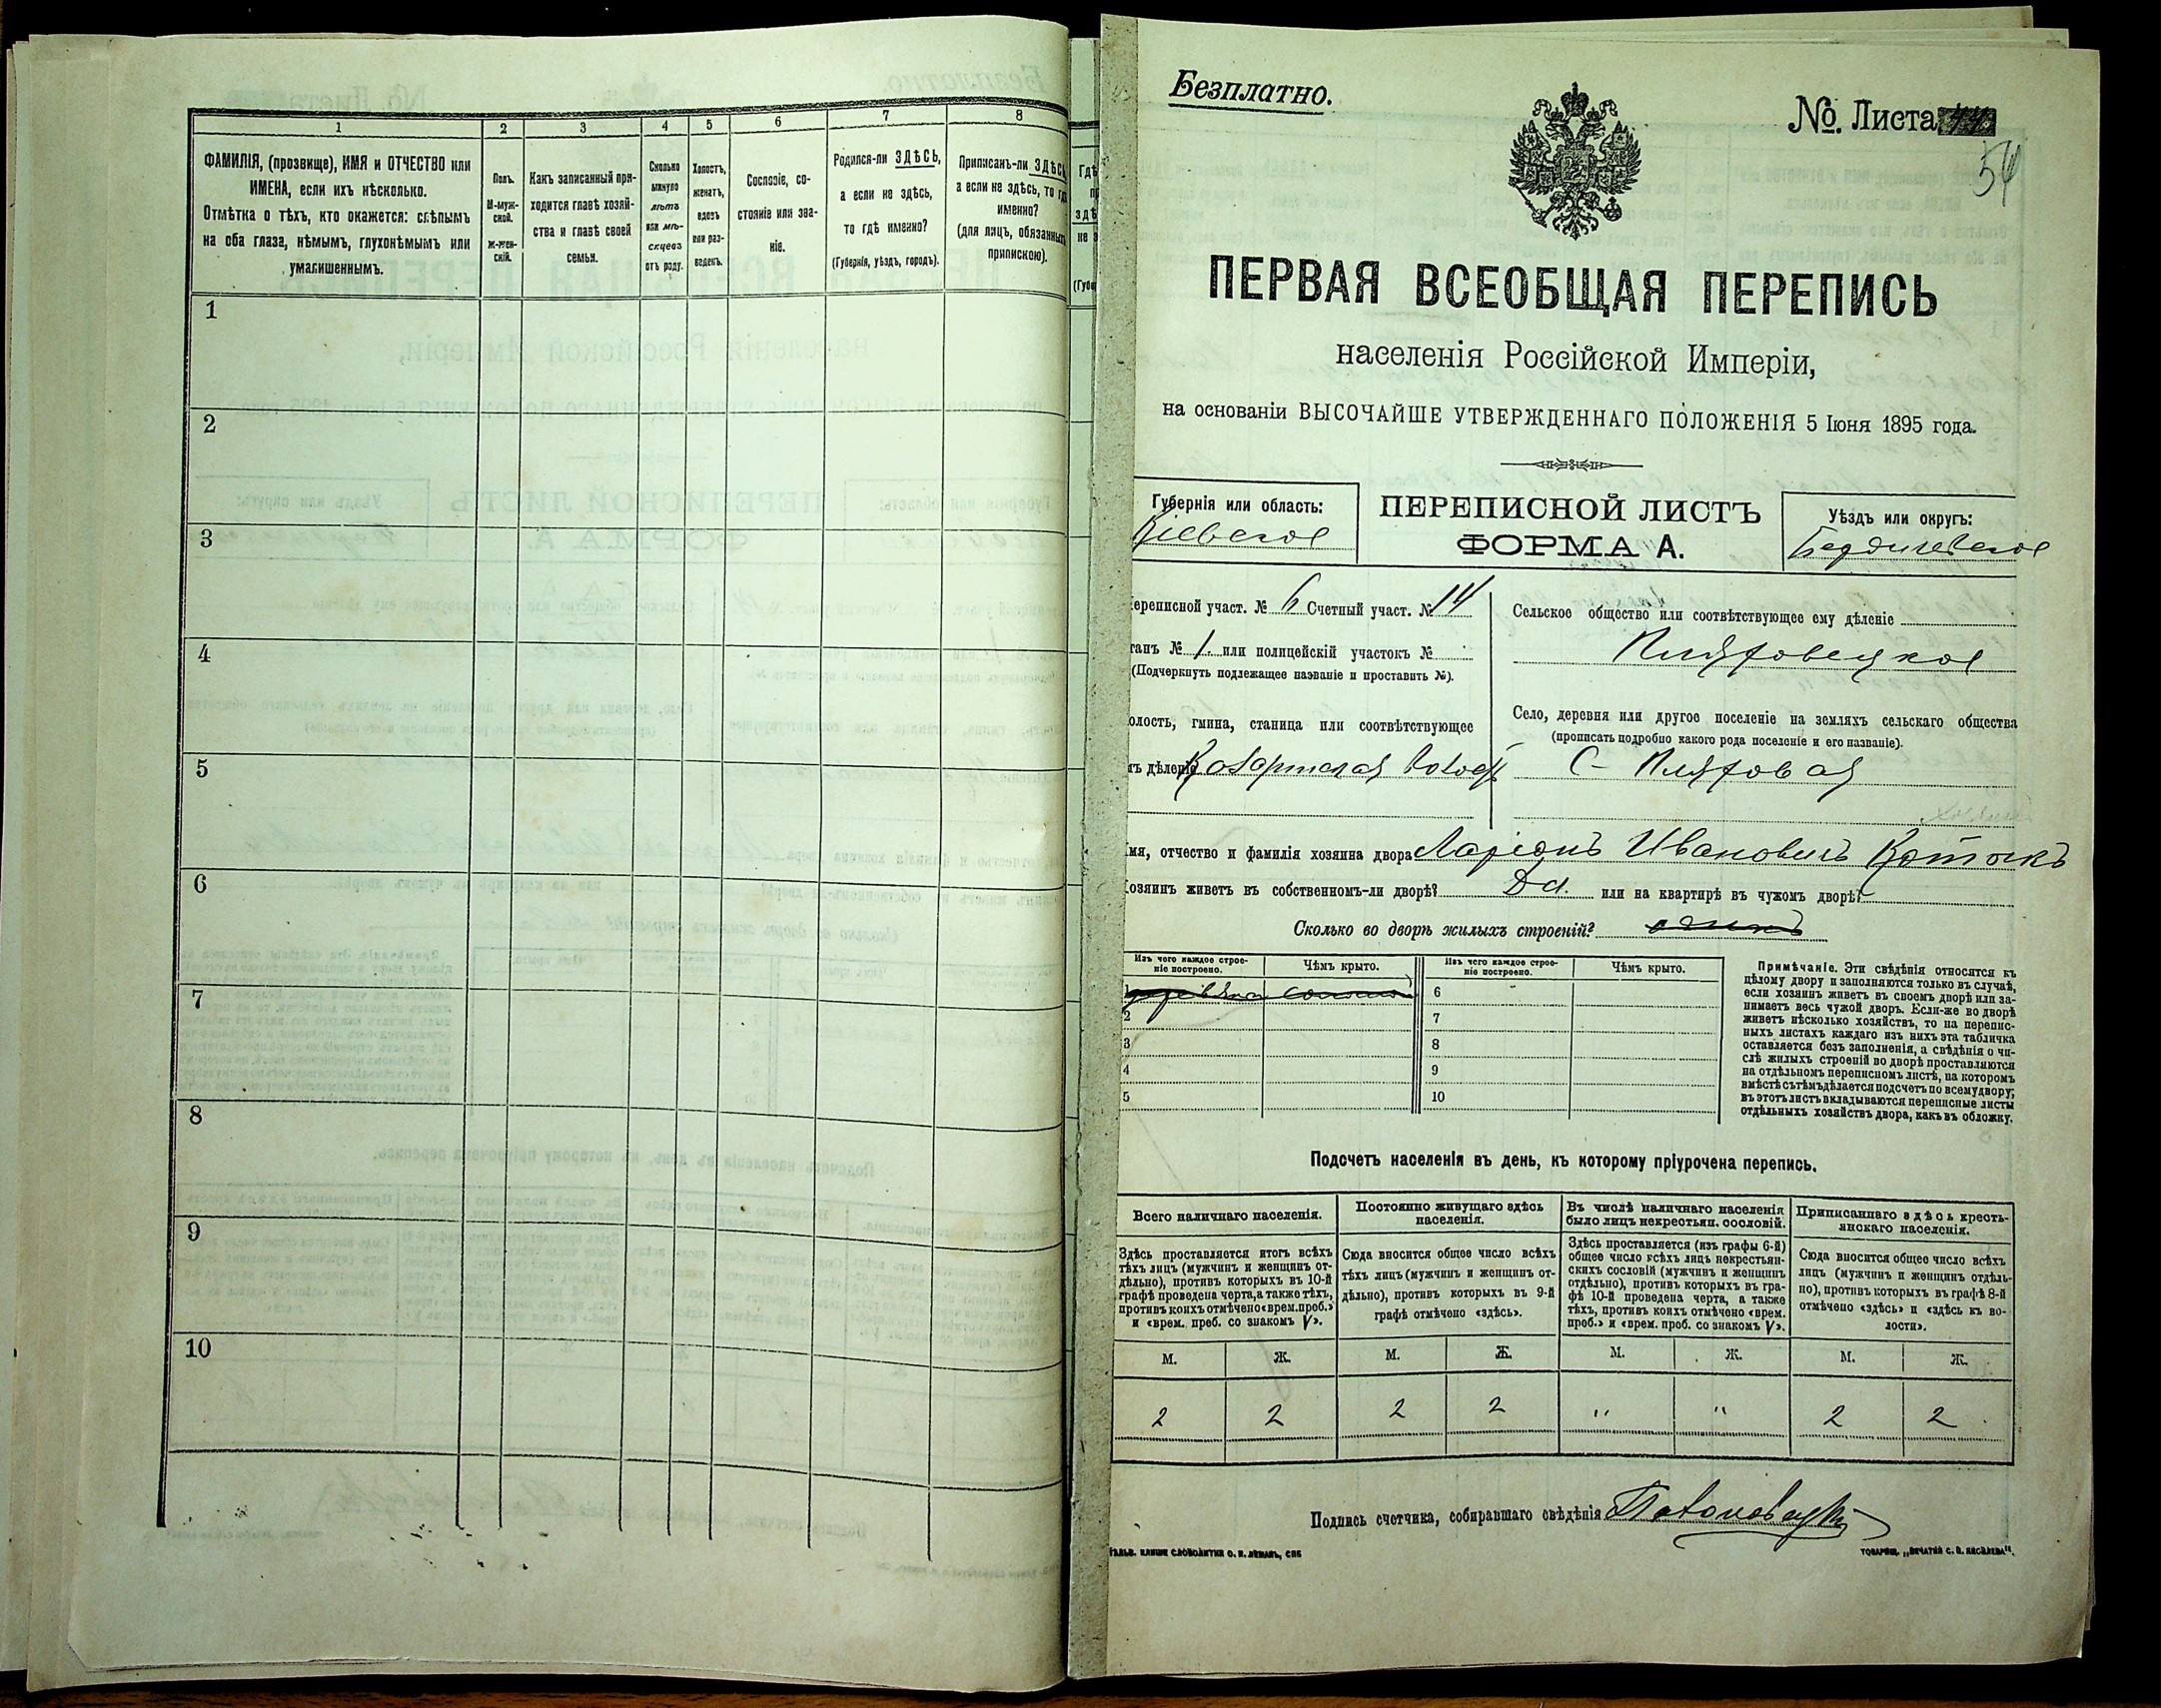 1
2
3
4
5
6
7
8
ФАМИЛІЯ, (прозвище), ИМЯ и ОТЧЕСТВО или
ИМЕНА, если ихъ нѣсколько.
Отмѣтка о тѣхъ, кто окажется: слѣпымъ
на оба глаза, нѣмымъ, глухонѣмымъ или
умалишеннымъ.
Полъ.
М-муж-
ской.
ж-жен-
скій.
Какъ записанный при-
ходится главѣ хозяй-
ства и главѣ своей
семьи.
Сколько
минуло
лѣтъ
или мѣ-
сяцевъ
отъ роду.
Холостъ,
женатъ,
вдовъ
или раз-
веденъ.
Сословіе, со-
стояніе или зва-
ніе.
Родился-ли ЗДѢСЬ,
а если не здѣсь,
то гдѣ именно?
(Губернія, уѣздъ, городъ).
Приписанъ-ли ЗДѢСЬ,
а если не здѣсь, то гдѣ
именно?
(для лицъ, обязанныхъ
припискою).
1
2
3
4
5
6
7
8
9
10
Безплатно.
№ Листа 44
54
ПЕРВАЯ ВСЕОБЩАЯ ПЕРЕПИСЬ
населенія Россійской Имперіи,
на основаніи ВЫСОЧАЙШЕ УТВЕРЖДЕННАГО ПОЛОЖЕНІЯ 5 Іюня 1895 года.
Губернія или область:
Кіевское
ПЕРЕПИСНОЙ ЛИСТЪ
ФОРМА А.
Уѣздъ или округъ:
Бердичевское
ереписной участ. № 6 Счетный участ. № 14
танъ № 1. или полицейскій участокъ №
(Подчеркнуть подлежащее названіе и проставить №).
олость, гмина, станица или соотвѣтствующее
ъ дѣленіе
Сельское общество или соотвѣтствующее ему дѣленіе
Пляховецкое
Село, деревня или другое поселеніе на земляхъ сельскаго общества
(прописать подробно какого рода поселеніе и его названіе).
С- Пляховая
мя, отчество и фамилія хозяина двора Ларіонъ Ивановичъ Котокъ
озяинъ живетъ въ собственномъ-ли дворѣ? Да. или на квартирѣ въ чужомъ дворѣ?
Сколько во дворѣ жилыхъ строеній? одинъ
Изъ чего каждое строе-
ніе построено.
Чѣмъ крыто.
Изъ чего каждое строе-
ніе построено.
Чѣмъ крыто.
1
2
3
4
5
6
7
8
9
10
Примѣчаніе. Эти свѣдѣнія относятся къ
цѣлому двору и заполняются только въ случаѣ,
если хозяинъ живетъ въ своемъ дворѣ или за-
нимаетъ весь чужой дворъ. Если-же во дворѣ
живетъ нѣсколько хозяйствъ, то на перепис-
ныхъ листахъ каждаго изъ нихъ эта табличка
оставляется безъ заполненія, а свѣдѣнія о чи-
слѣ жилыхъ строеній во дворѣ проставляются
на отдѣльномъ переписномъ листѣ, на которомъ
вмѣстѣ съ тѣмъ дѣлается подсчетъ по всему двору;
въ этотъ листъ вкладываются переписные листы
отдѣльныхъ хозяйствъ двора, какъ въ обложку.
Подсчетъ населенія въ день, къ которому пріурочена перепись.
Всего наличнаго населенія.
Постоянно живущаго здѣсь
населенія.
Въ числѣ наличнаго населенія
было лицъ некрестьян. сословій.
Приписаннаго здѣсь кресть-
янскаго населенія.
Здѣсь проставляется итогъ всѣхъ
тѣхъ лицъ (мужчинъ и женщинъ от-
дѣльно), противъ которыхъ въ 10-й
графѣ проведена черта, а также тѣхъ,
противъ коихъ отмѣчено «врем. преб.»
и «врем. преб. со знакомъ V».
Сюда вносится общее число всѣхъ
тѣхъ лицъ (мужчинъ и женщинъ от-
дѣльно), противъ которыхъ въ 9-й
графѣ отмѣчено «здѣсь».
Здѣсь проставляется (изъ графы 6-й)
общее число всѣхъ лицъ некрестьян-
скихъ сословій (мужчинъ и женщинъ
отдѣльно), противъ которыхъ въ гра-
фѣ 10-й проведена черта, а также
тѣхъ, противъ коихъ отмѣчено «врем.
преб.» и «врем. преб. со знакомъ V».
Сюда вносится общее число всѣхъ
лицъ (мужчинъ и женщинъ отдѣль-
но), противъ которыхъ въ графѣ 8-й
отмѣчено «здѣсь» и «здѣсь къ во-
лости».
М. Ж. М. Ж. М. Ж. М. Ж.
2 2 2 2 " " 2 2
Подпись счетчика, собиравшаго свѣдѣнія